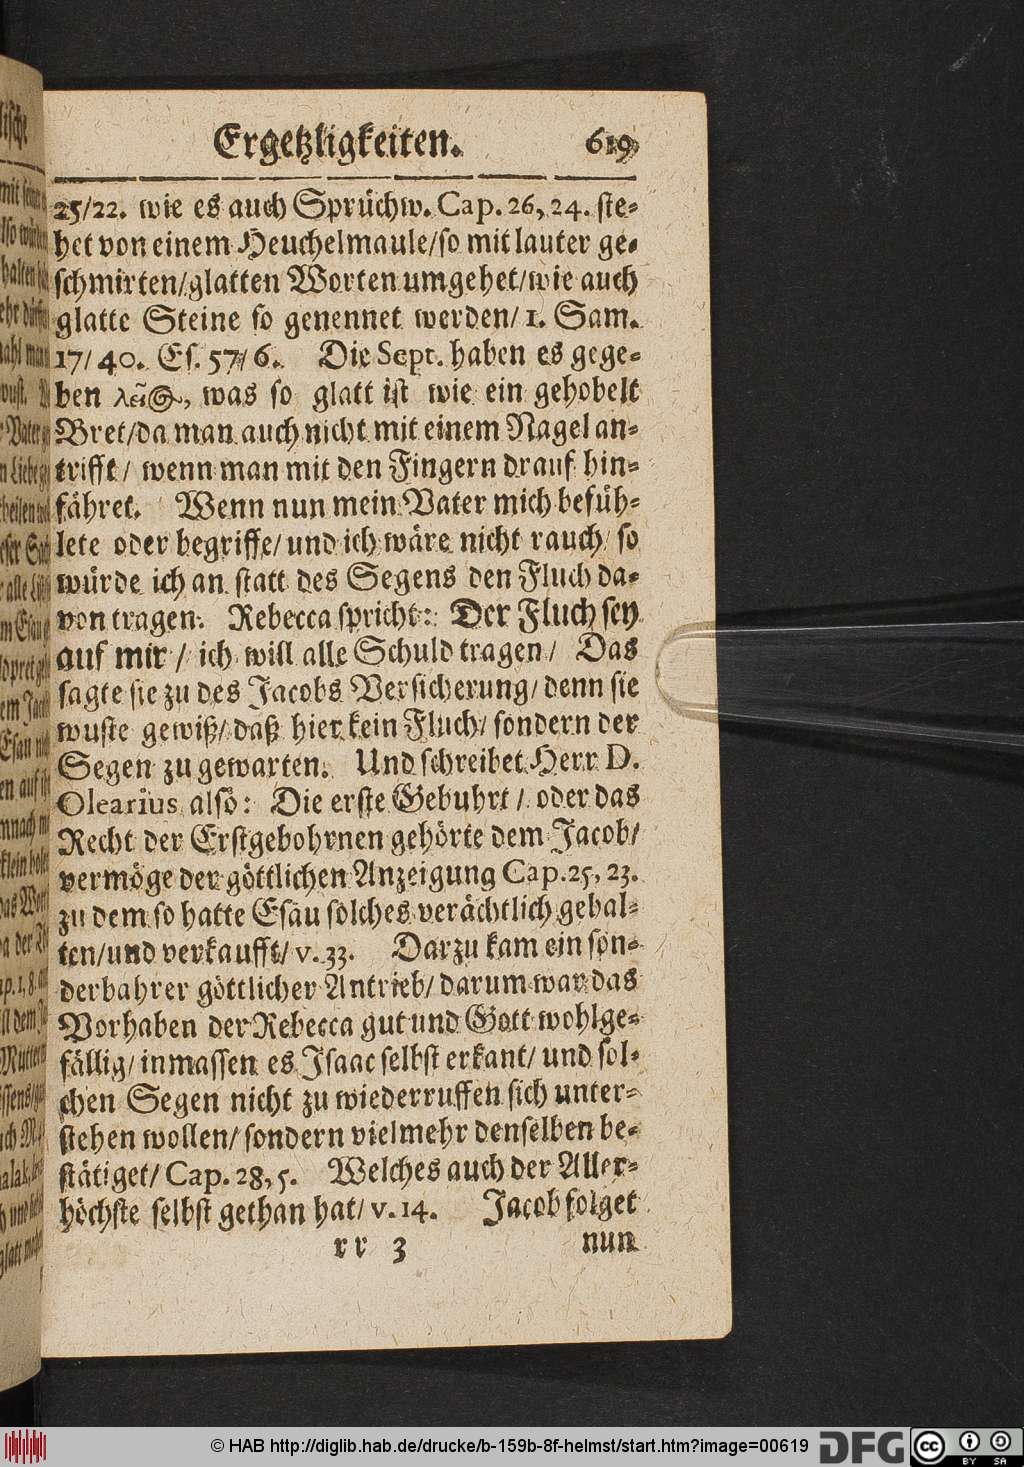 Ergetzligkeiten. 619
25/22. wie es auch Sprüchw. Cap. 26, 24. ste-
het von einem Heuchelmaule/so mit lauter ge-
schmirten/glatten Worten umgehet/wie auch
glatte Steine so genennet werden/ 1. Sam.
17/40. Es. 57/6. Die Sept. haben es gege-
ben was so glatt ist wie ein gehobelt
Bret/da man auch nicht mit einem Nagel an-
trifft/ wenn man mit den Fingern drauf hin-
fähret. Wenn nun mein Vater mich befüh-
lete oder begriffe/und ich wäre nicht rauch/ so
würde ich an statt des Segens den Fluch da-
von tragen. Rebecca spricht: Der Fluch sey
auf mir/ ich will alle Schuld tragen/ Das
sagte sie zu des Jacobs Versicherung/denn sie
wuste gewiß/daß hier kein Fluch/sondern der
Segen zu gewarten. Und schreibet Herr D.
Olearius also: Die erste Gebuhrt/ oder das
Recht der Erstgebohrnen gehörte dem Jacob/
vermöge der göttlichen Anzeigung Cap. 25, 23.
zu dem so hatte Esau solches verächtlich gehal-
ten/und verkaufft/ v. 33. Darzu kam ein son-
derbahrer göttlicher Antrieb/darum war das
Vorhaben der Rebecca gut und Gott wohlge-
fällig/inmassen es Isaac selbst erkant/und sol-
chen Segen nicht zu wiederruffen sich unter-
stehen wollen/sondern vielmehr denselben be-
stätiget/ Cap. 28, 5. Welches auch der Aller-
höchste selbst gethan hat/ v. 14. Jacob folget
rr 3 nun
© HAB http://diglib.hab.de/drucke/b-159b-8f-helmst/start.htm?image=00619 DFG cc BY SA